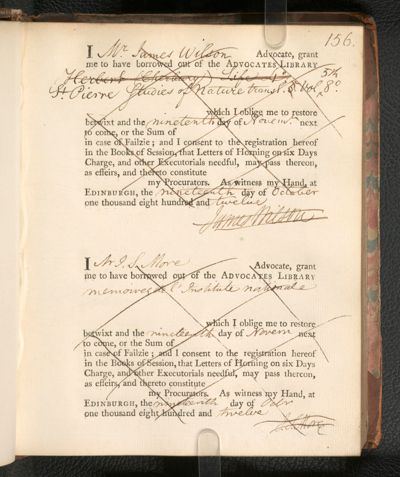 156.
I Mr. James Wilson Advocate, grant
me to have borrowed out of the ADVOCATES LIBRARY
Herbert Life 4o
St. Pierre Studies of Nature transl. 5th Vol. 8o.
which I oblige me to restore
betwixt and the nineteenth day of Novemr. next
to come, or the Sum of
in case of Failzie; and I consent to the registration hereof
in the Books of Session, that Letters of Horning on six Days
Charge, and other Executorials needful, may pass thereon,
as effeirs, and thereto constitute
my Procurators. As witness my Hand, at
EDINBURGH, the nineteenth day of October
one thousand eight hundred and twelve
James Wilson
I Mr J. S. More Advocate, grant
me to have borrowed out of the ADVOCATES LIBRARY
memoires Institute nationale
which I oblige me to restore
betwixt and the nineteenth day of Novem next
to come, or the Sum of
in case of Failzie; and I consent to the registration hereof
in the Books of Session, that Letters of Horning on six Days
Charge, and other Executorials needful, may pass thereon,
as effeirs, and thereto constitute
my Procurators. As witness my Hand, at
EDINBURGH, the nineteenth day of Octr
one thousand eight hundred and twelve